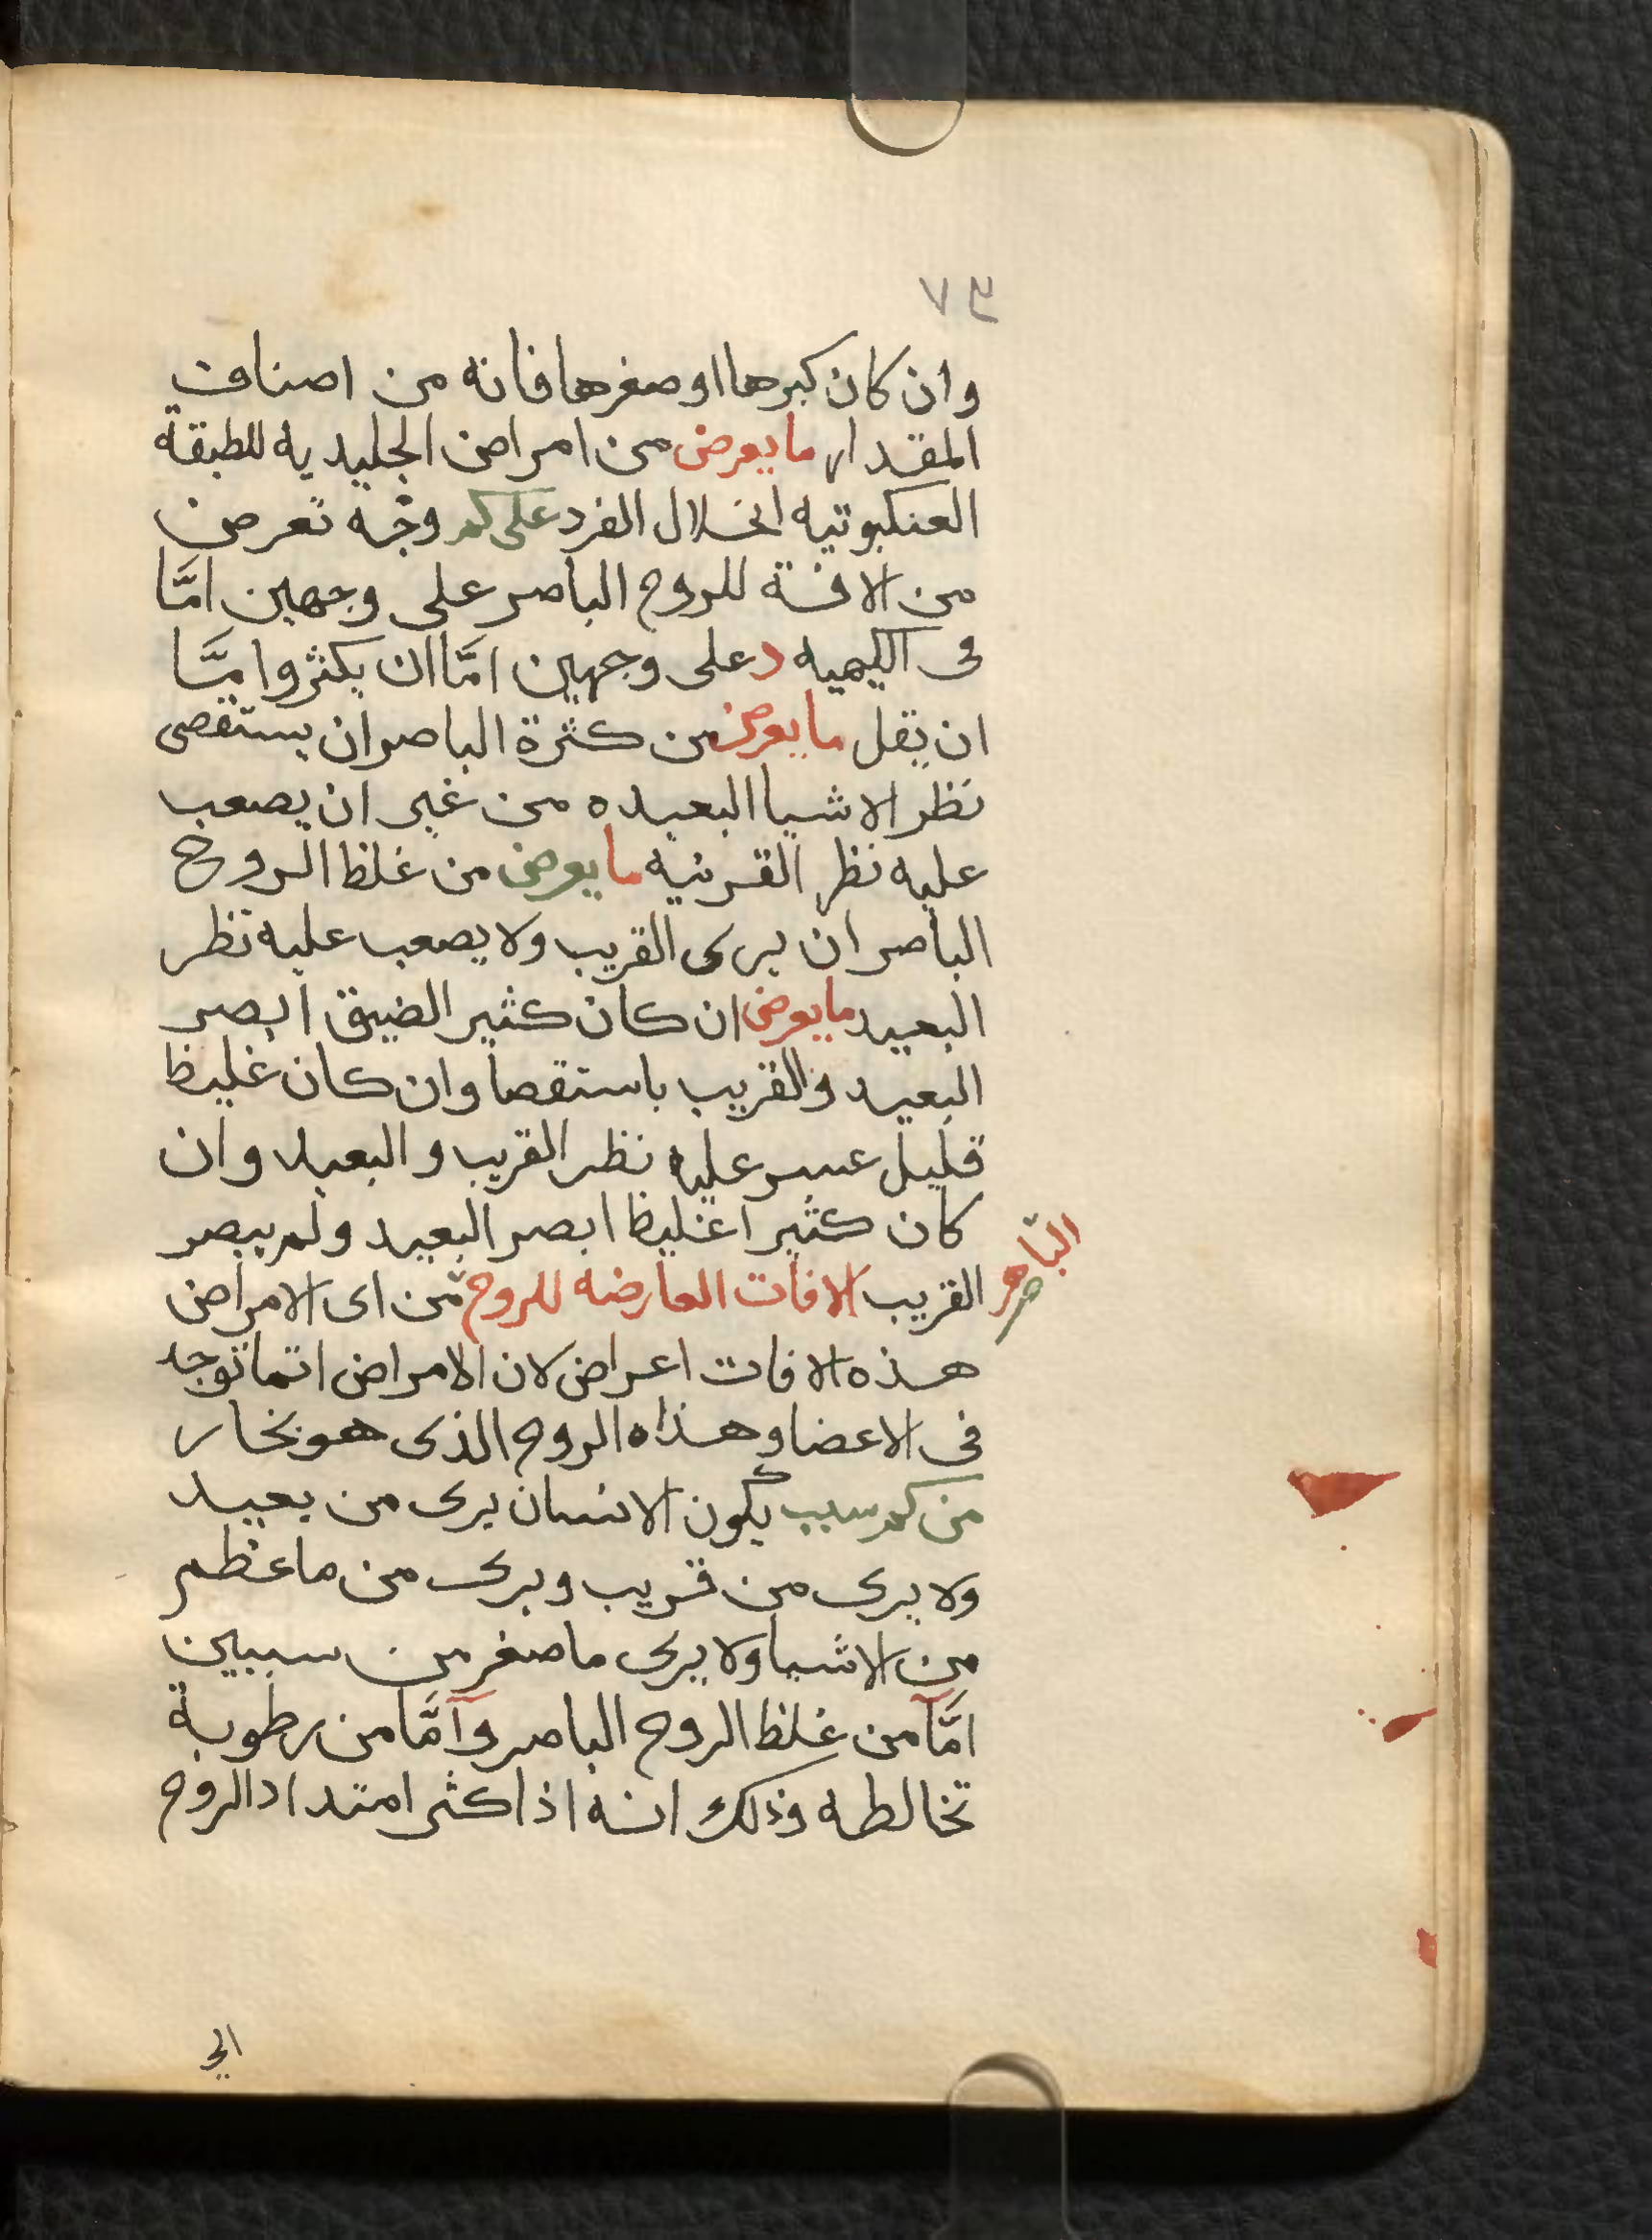 وان كان كبرها او صغرها فانه من اصناف
المقدار ما يعرض من امراض الجليديه للطبقة
العنكبوتيه انحلال الفرد على كم وجه تعرض
من الافة للروح الباصر على وجهين امَّا
فى الكيميه د على وجهين امَّا ان يكثر وامَّا
ان يقل ما يعرض من كثرة الباصر ان يستقصى
نظر الاشيا البعيده من غير ان يصعب
عليه نظر القريبه ما يعرض من غلظ الروح
الباصر ان يرى القريب ولا يصعب عليه نظر
البعيد ما يعرض ان كان كثير الضيق ابصر
البعيد والقريب باستقصا وان كان غليظ
قليل عسر عليه نظر القريب والبعيد وان
كان كثيرا غليظا ابصر البعيد ولم يبصر
القريب الافات العارضه للروح من اى الامراض
الباصر
هذه الافات اعراض لان الامراض انما توجد
فى الاعضا وهذاه الروح الذى هو بخار
من كم سبب يكون الانسان يرى من بعيد
ولا يرى من قريب ويرى من ما عظم
من الاشيا ولا يرى ما صغر من سببين
امَّا من غلظ الروح الباصر وامَّا من رطوبة
تخالطه وذلك انه اذا كثر امتداد الروح
الى